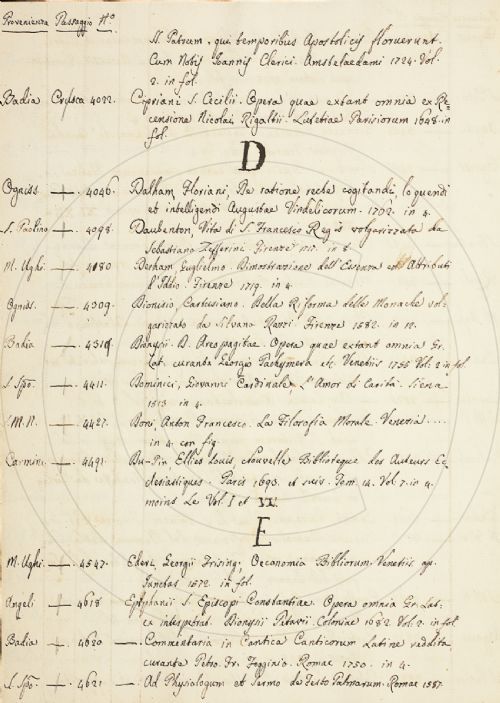 Provenienza Passaggio N.o
SS. Patrum, qui temporibus Apostolicis floruerunt.
Cum Notis Joannis Clerici. Amstelaedami 1724. Vol.
2. in fol.
Badia Crusca 4022. Cypriani S. Cecilii. Opera quae extant omnia ex Re-
censione Nicolai Rigaltii. Lutetiae Parisiorum 1648. in
fol.
D
Ogniss. 4046. Dalham, Floriani, De ratione recte cogitandi, loquendi
et intelligendi Augustae Vindelicorum. 1762. in 4.
S. Paolino 4098. Daubenton, Vita di S. Francesco Regis volgarizzata da
Sebastiano Zefferini. Firenze 1717. in 8.
M. Ughi 4180 Derham, Guglielmo. Dimostrazione dell'Essenza ed Attributi
d'Iddio. Firenze 1719. in 4.
Ogniss. 4309. Dionisio, Cartusiano. Della Riforma delle Monache vol-
garizzato da Silvano Razzi. Firenze 1582. in 12.
Badia 4319. Dionysii. D. Areopagitae Opera quae extant omnia Gr.
Lat. curanda Georgio Pachymera etc. Venetiis 1756 Vol: 2 in fol.
S. Spo. 4411. Dominici, Giovanni Cardinale, L'Amor di Carità. Siena
1513 in 4.
S. M. N. 4427. Doni, Anton Francesco. La Filosofia Morale. Venezia ....
in 4. con fig.
Carmine. 4491. Du-Pin, Ellies Louis, Nouvelle Biblioteque des Auteurs Ec-
clesiastiques. Paris 1693. et suiv. Tom. 14. Vol. 7. in 4.
moins Le Vol. I et VI.
E
M. Ughi 4547. Ederi, Georgii Frising; Oeconomia Bibliorum. Venetiis ap.
Junctas 1572. in fol.
Angeli 4618 Epiphanii S. Episcopi Constantiae. Opera omnia Gr. Lat.
ex interpetrat. Dionysii Petavii. Coloniae 1682. Vol. 2. in fol.
Badia 4620 Commentaria in Cantica Canticorum Latine reddita,
curante Petro Fr. Fogginio. Romae 1750. in 4.
S. Spo. 4621 Ad Physiologum et Sermo de Festo Palmarum. Romae 1587.